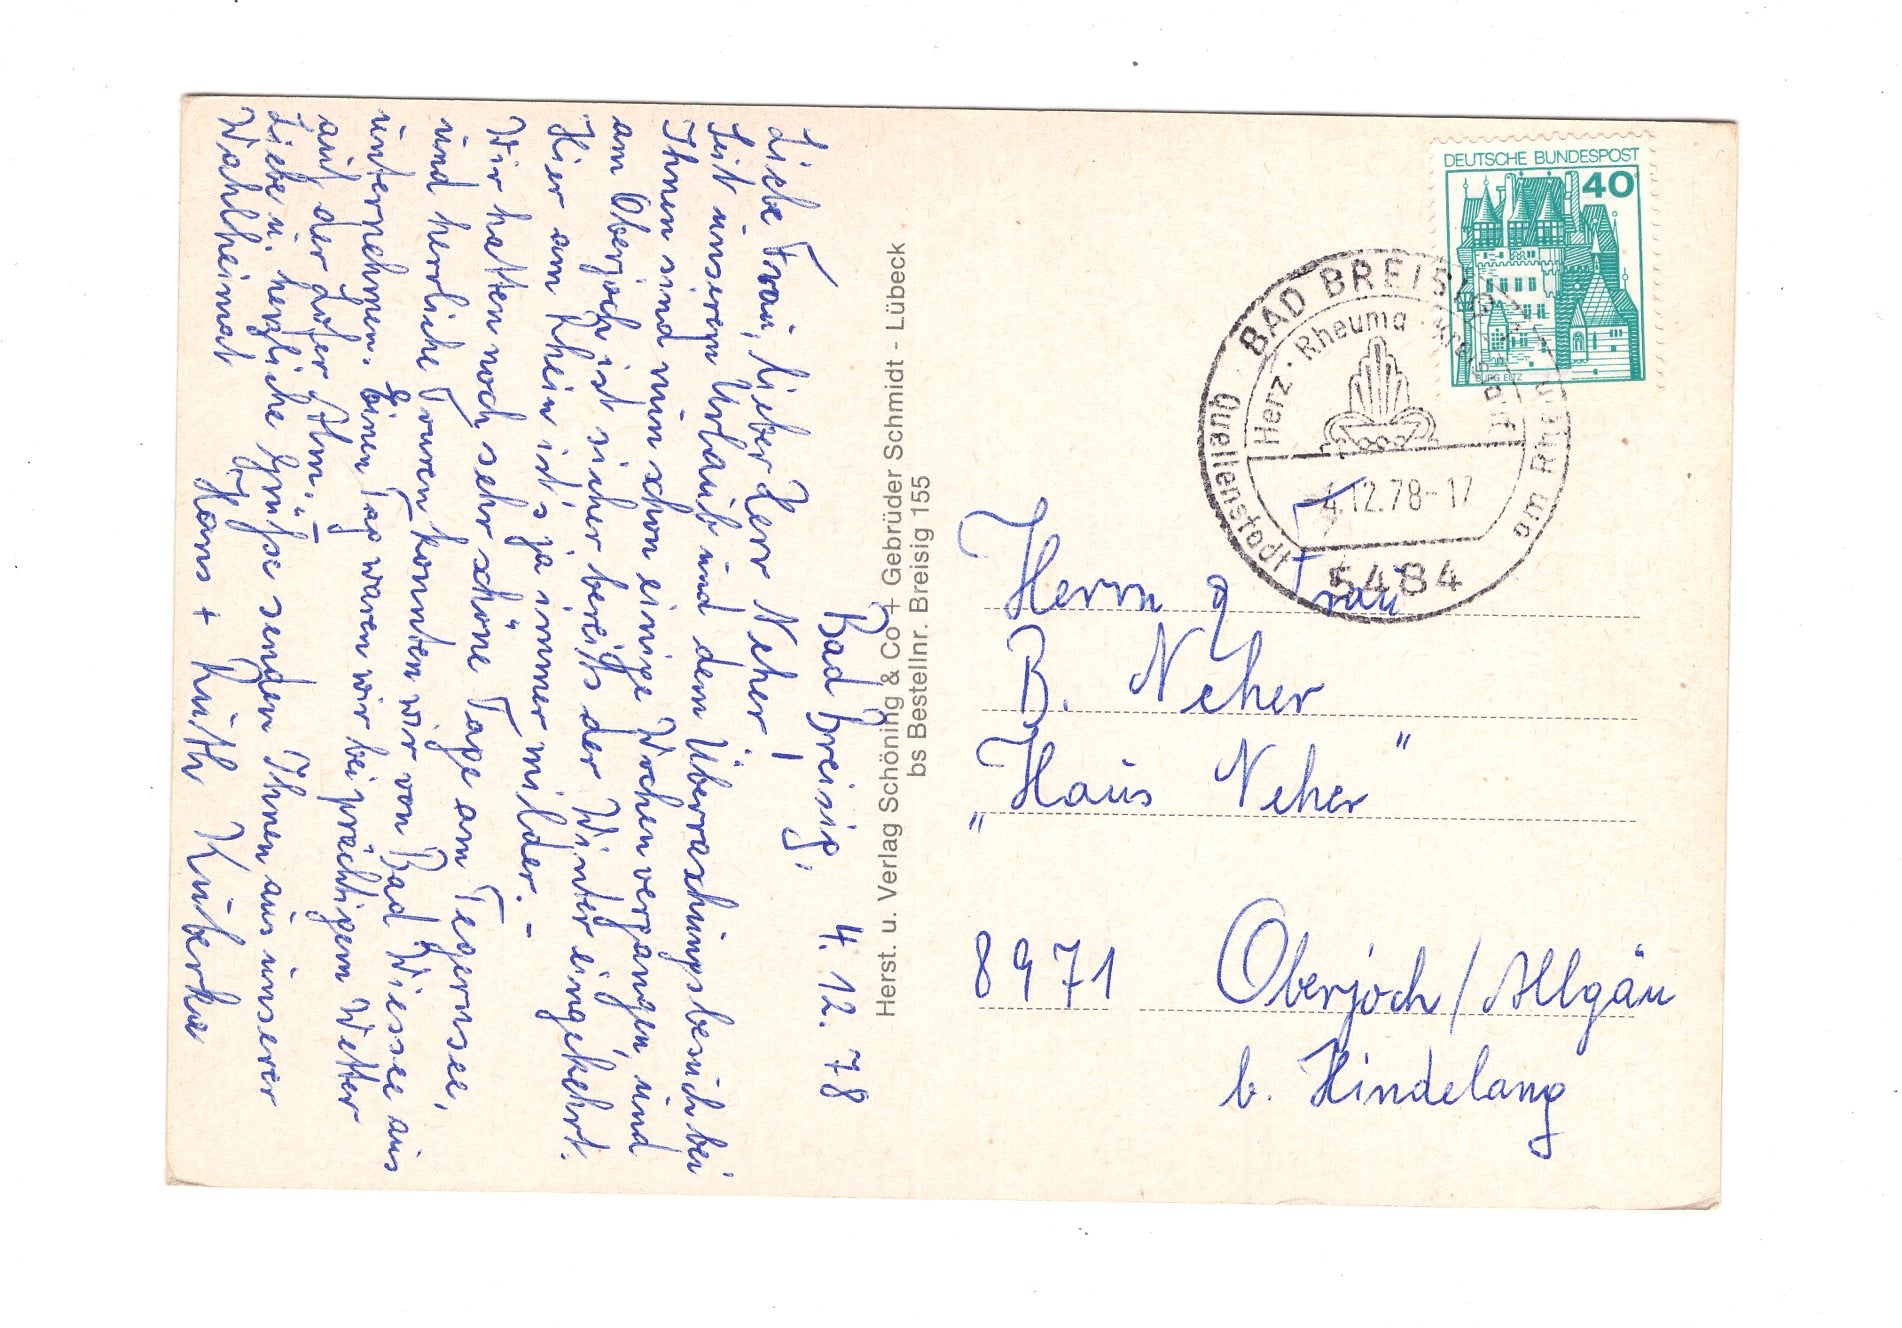 Bad Breisig, 4.12.78
Liebe Frau, lieber Herr Neher!
Seit unserem Urlaub und dem Überraschungsbesuch bei
Ihnen sind nun schon einige Wochen vergangen und
am Oberjoch ist sicher bereits der Winter eingekehrt.
Hier am Rhein ist's ja immer milder. –
Wir hatten noch sehr schöne Tage am Tegernsee,
und herrliche Touren konnten wir von Bad Wiessee aus
unternehmen. Einen Tag waren wir bei prächtigem Wetter
auf der Alm. –
Liebe u. herzliche Grüße senden Ihnen aus unserer
Wahlheimat
Hans + Ruth Kuberka
Herst. u. Verlag Schöning & Co + Gebrüder Schmidt - Lübeck
bs Bestellnr. Breisig 155
DEUTSCHE BUNDESPOST
40
BURG ELTZ
BAD BREISIG
Quellenstadt
am Rhein
Herz · Rheuma · Kreislauf
4.12.78-17
5484
Herrn u. Frau
B. Neher
"Haus Neher"
8971 Oberjoch/Allgäu
b. Hindelang